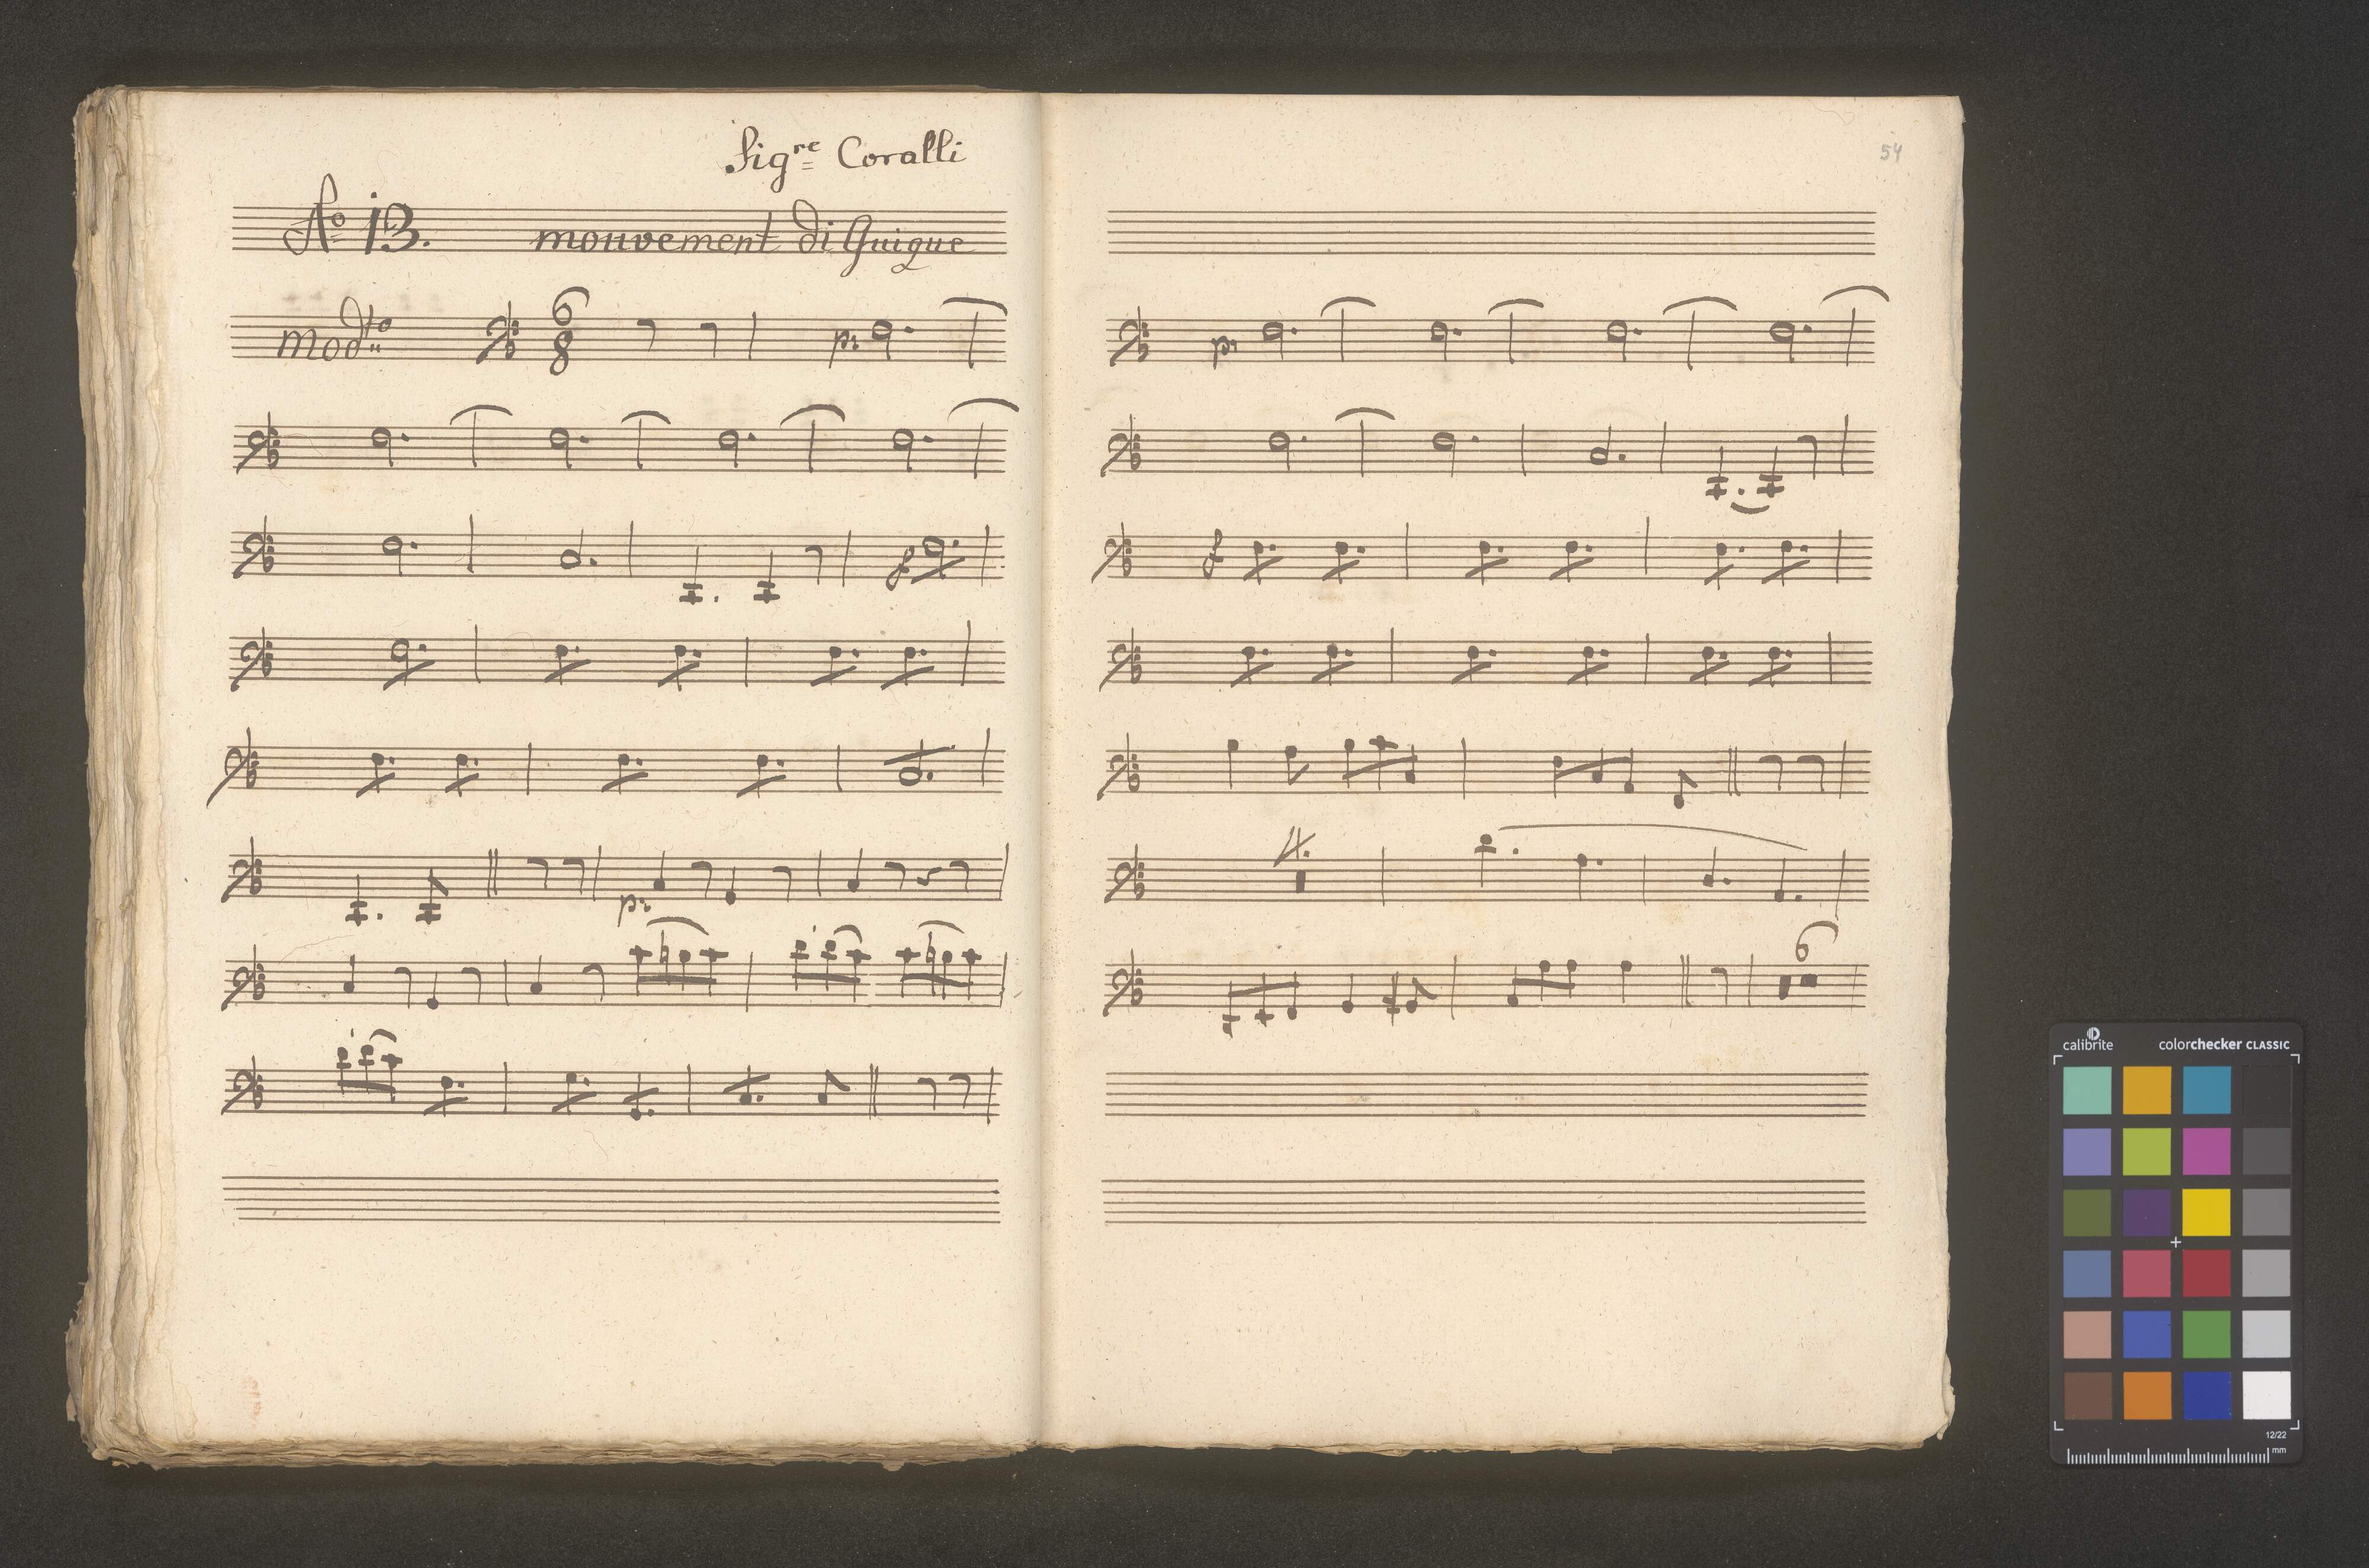 Sigre Coralli
No 13. mouvement di Guigue
modto 6 8 p:
f
p:
54
p:
f
4.
6
calibrite colorchecker CLASSIC
12/22
mm